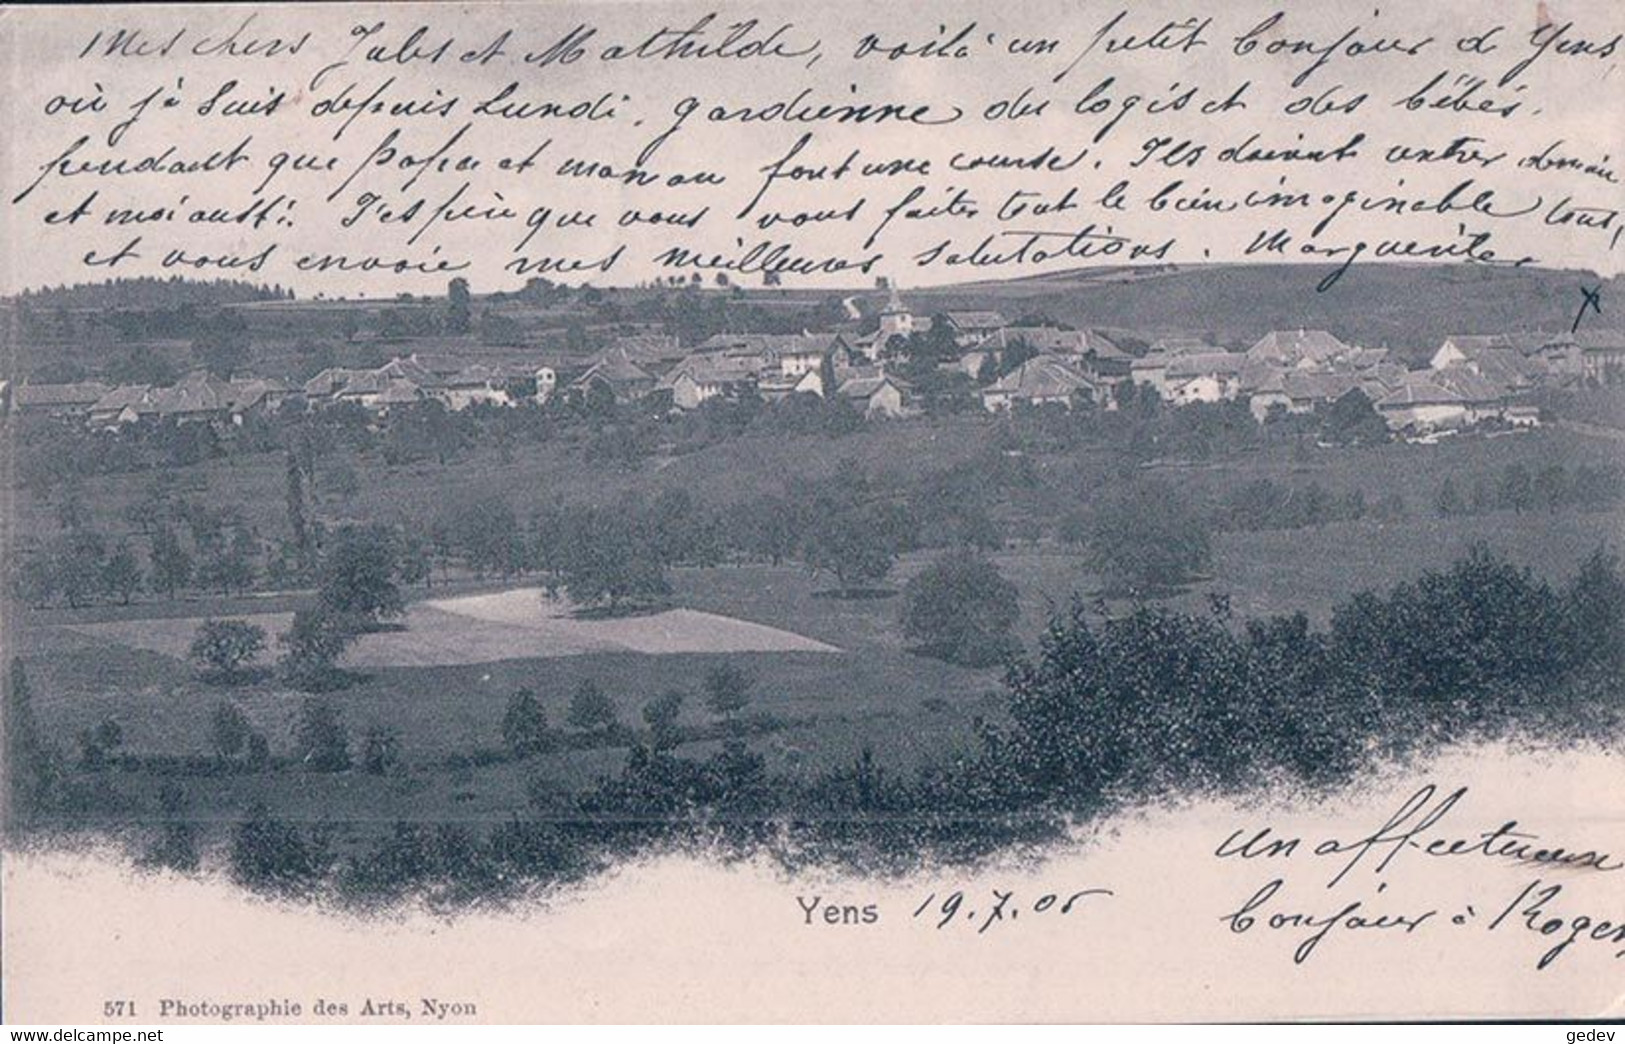 Mes chers Jules et Mathilde, voilà un petit bonjour d'Yens,
où je suis depuis Lundi, gardienne du logis et des bébés,
pendant que Papa et maman font une course. Ils doivent rentrer demain
et moi aussi. J'espère que vous vous faites tout le bien imaginable tous,
et vous envoie mes meilleures salutations. Marguerite.
x
Un affectueux
bonjour à Roger
Yens 19.7.05
571 Photographie des Arts, Nyon
gedev